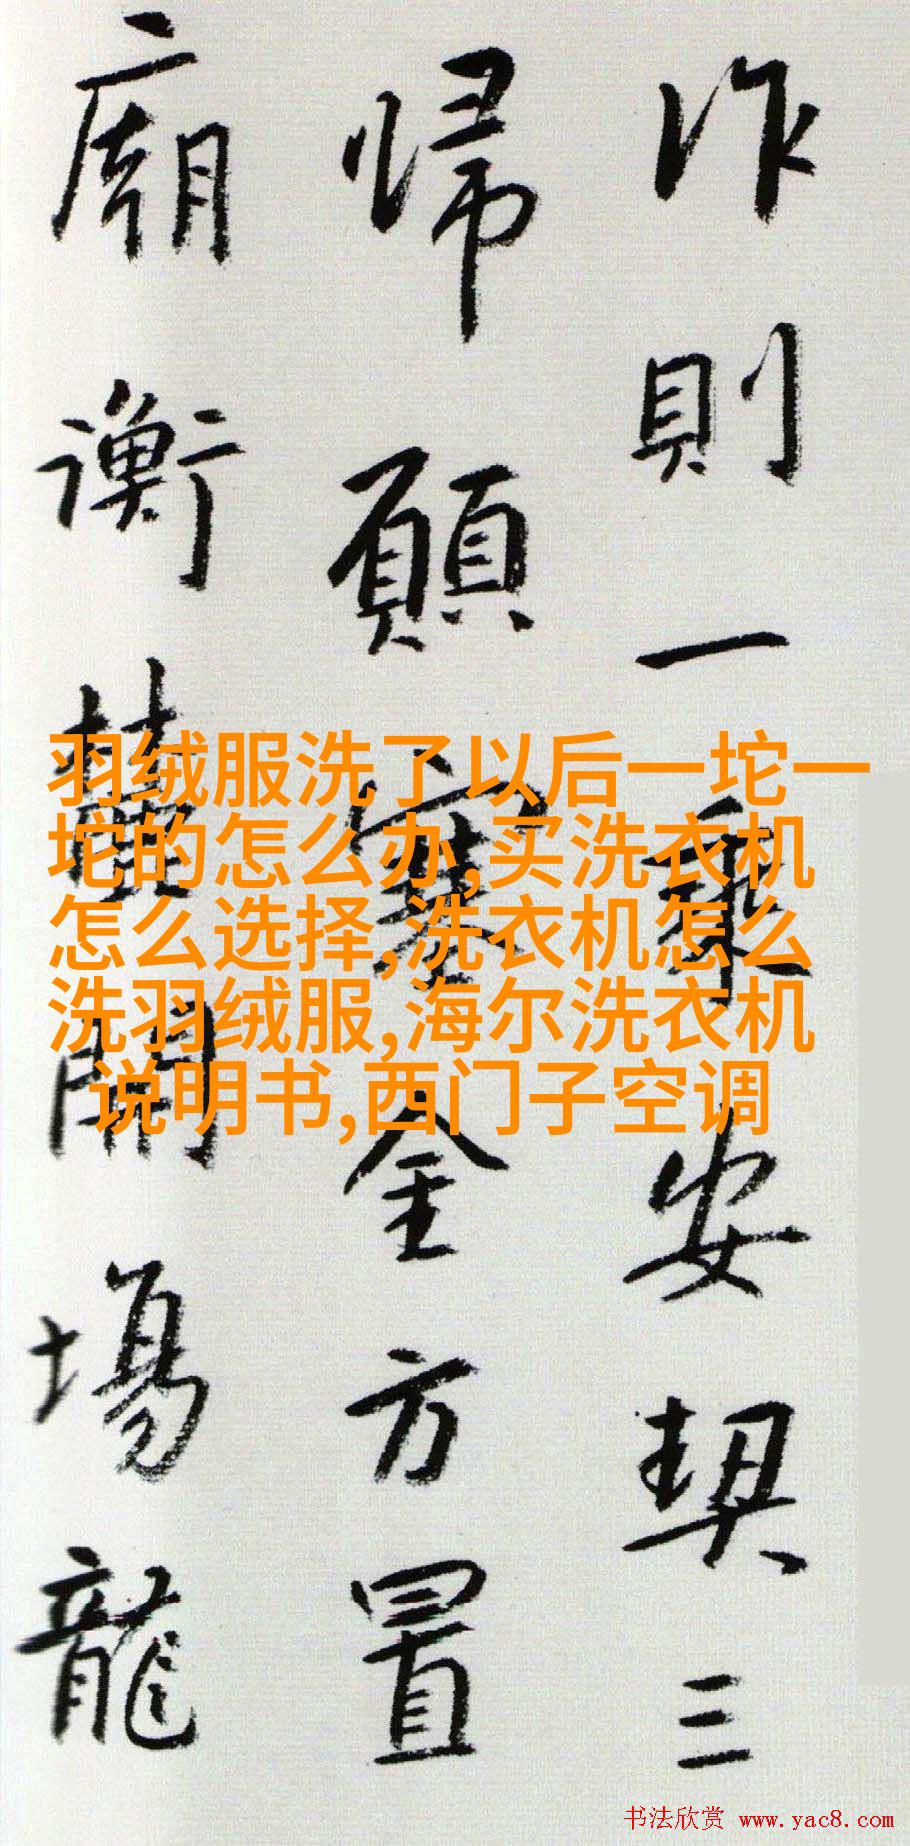 作則一乘安契三
帰願塞全方置
廟衡開場龍
羽绒服洗了以后一坨一
坨的怎么办,买洗衣机
怎么选择,洗衣机怎么
洗羽绒服,海尔洗衣机
说明书,西门子空调
书法欣赏 www.yac8.com